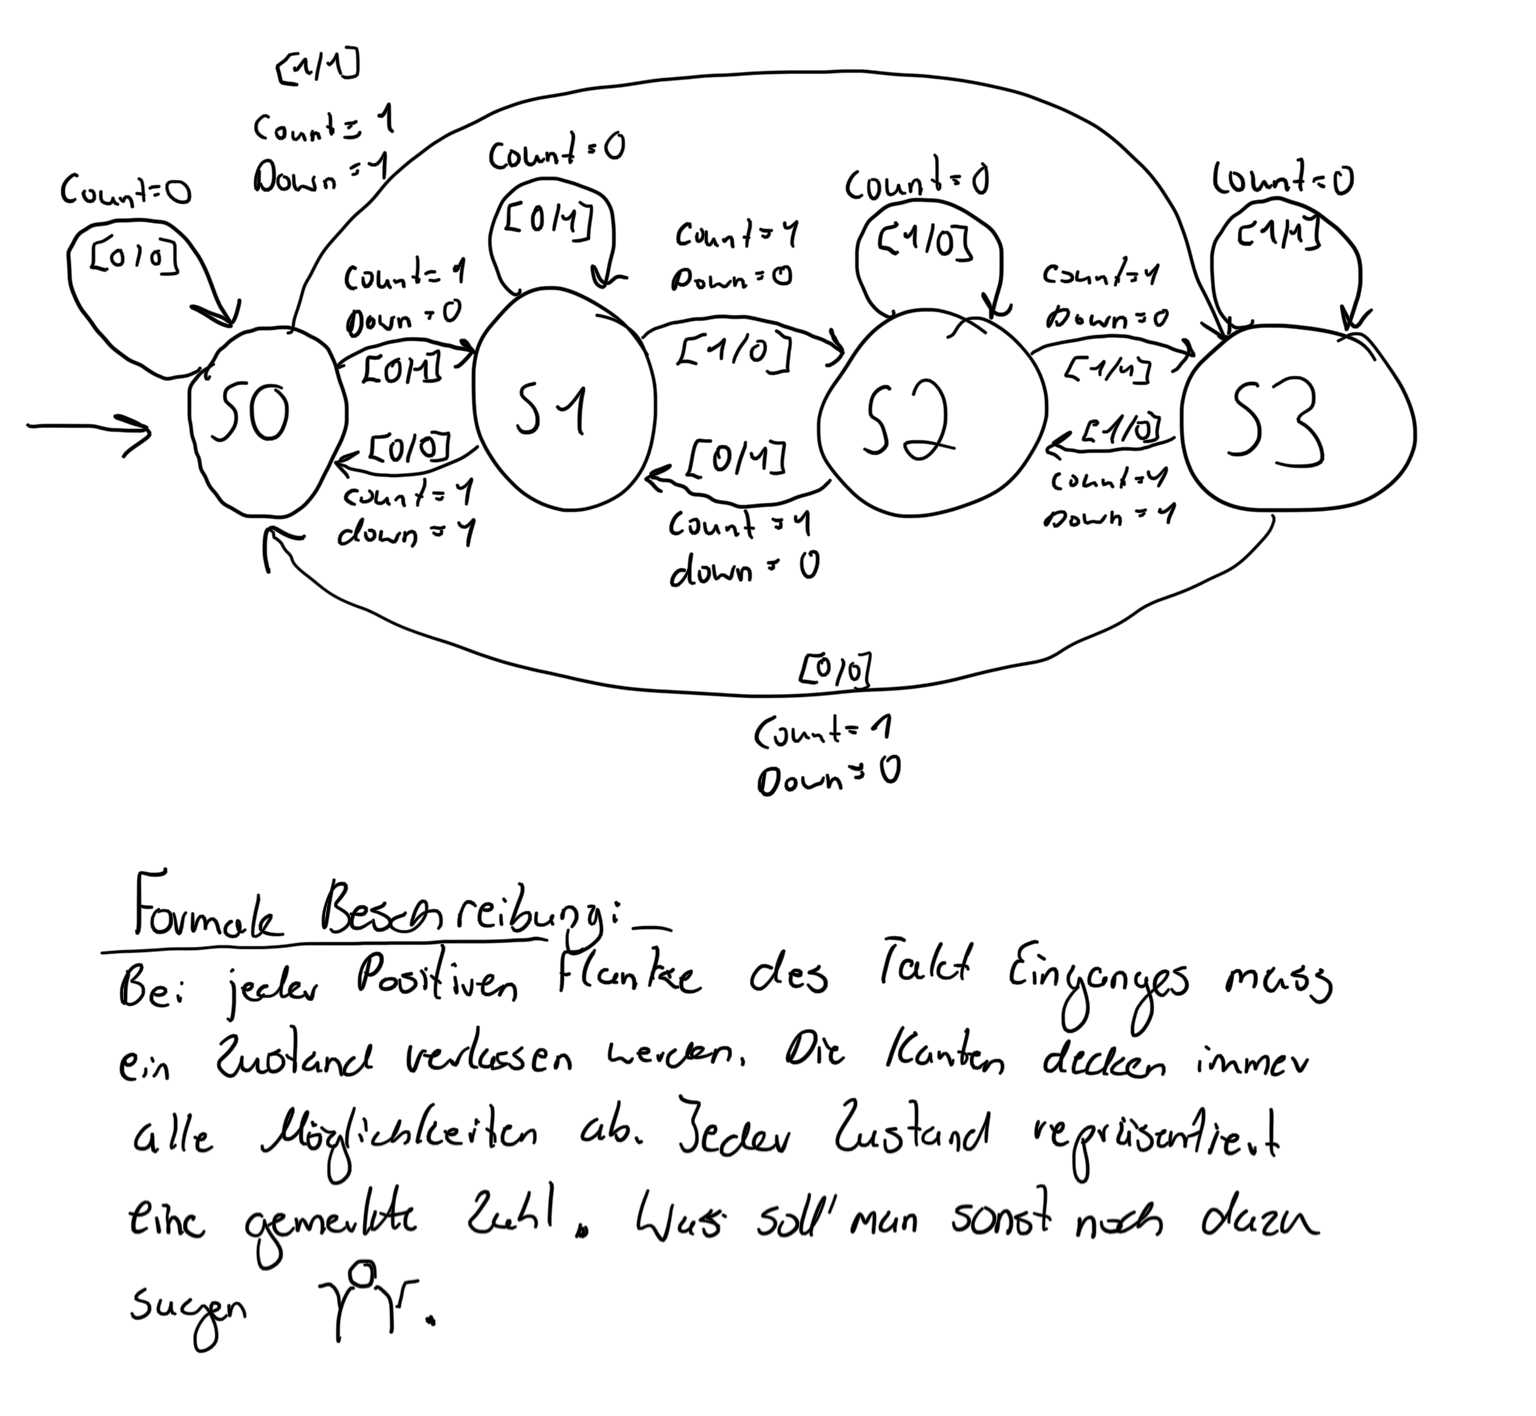 [1/1]
Count = 1
Down = 1
Count=0
[0/0]
Count=0
[0/1]
Count=0
[1/0]
Count=0
[1/1]
Count=1
Down=0
[0/1]
Count=1
Down=0
[1/0]
Count=1
Down=0
[1/1]
S0
S1
S2
S3
[0/0]
count=1
down=1
[0/1]
Count=1
down=0
[1/0]
Count=1
Down=1
[0/0]
Count=1
Down=0
Formale Beschreibung:
Bei jeder Positiven Flanke des Takt Einganges muss
ein Zustand verlassen werden. Die Kanten decken immer
alle Möglichkeiten ab. Jeder Zustand repräsentiert
eine gemerkte Zahl. Was soll' man sonst noch dazu
sagen